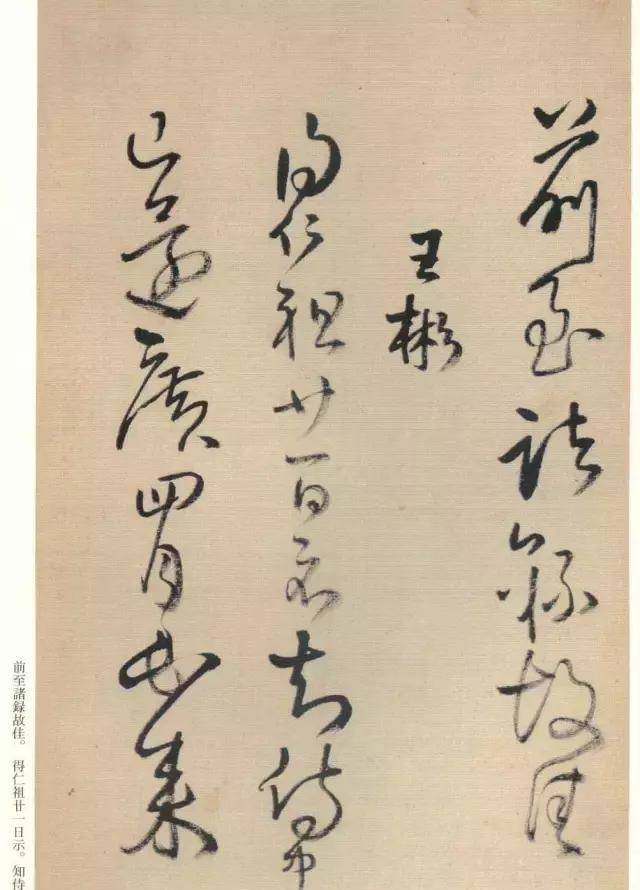 前至諸録故佳
王彬
得仁祖廿一日示知侍中
已還廣四月書来
前至諸録故佳。 得仁祖廿一日示。知侍